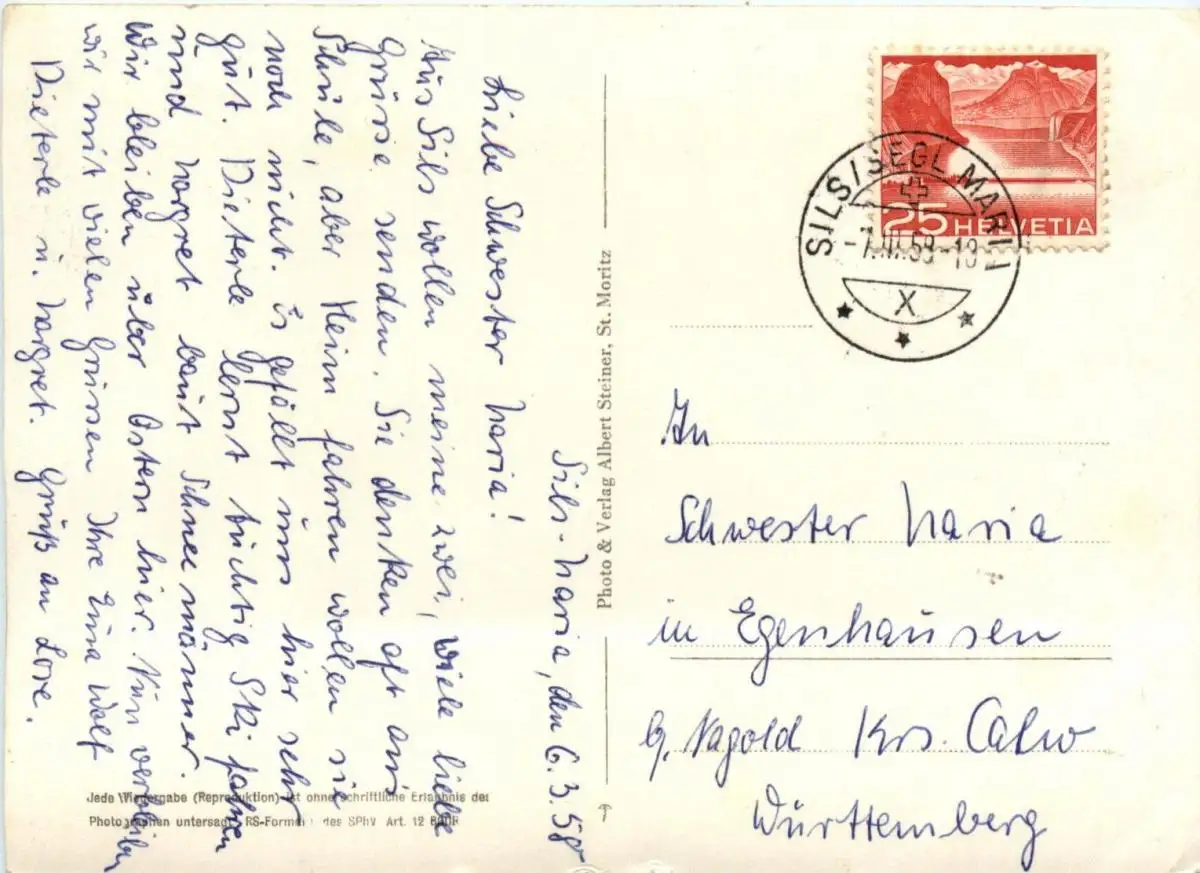 Sils-Maria, den 6.3.59
Liebe Schwester Maria!
Aus Sils wollen meine zwei, viele liebe
Grüsse senden. Sie denken oft ans
Schule, aber Heim fahren wollen sie
noch nicht. Es gefällt uns hier sehr
gut. Dieterle lernt tüchtig Ski fahren
und Margret baut Schneemänner.
Wir bleiben über Ostern hier. Nun verbleiben
wir mit vielen Grüssen Ihre Wolf
Dieterle u. Margret. Gruß an Lore.
Photo & Verlag Albert Steiner, St. Moritz
Jede Wiedergabe (Reproduktion) ist ohne schriftliche Erlaubnis der
Photographen untersagt RS-Formel des SPhV Art. 12
25 HELVETIA
SILS/SEGL MARIA
-7.III.59-18
X
An
Schwester Maria
in Egenhausen
b/ Nagold Krs. Calw
Württemberg